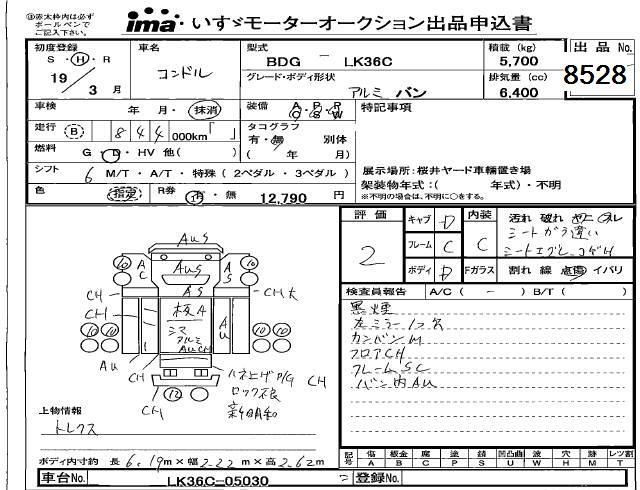 注赤太枠内は必ず
ボールペンで
ご記入下さい。
ima いすゞモーターオークション出品申込書
初度登録
S・H・R
19
3月
車名
コンドル
型式
BDG - LK36C
グレード・ボディ形状
アルミ バン
積載 (kg)
5,700
排気量 (cc)
6,400
出品No.
8528
車検
年 月・抹消
装備
A・P・P
C・S・W
特記事項
走行
B 844 000km「 」
タコグラフ
有・無 別体
( 年 月)
燃料
G・D・HV 他( )
シフト
6 M/T・A/T・特殊(2ペダル・3ペダル)
展示場所:桜井ヤード車輌置き場
架装物年式:( 年式)・不明
※不明の場合は、不明に○をする。
色
指定
R券
有・無
12,790 円
評価
2
キャブ D
フレーム C
ボディ D
内装
C
Fガラス
汚れ 破れ
シートガラ違い
割れ 線 点傷 イバリ
検査員報告 A/C( - ) B/T( )
黒煙
左ミラー1つ欠
カンバンM
フロアCH
フレームSC
バン内AU
AUS
AUS
AS
A
C
A
S
CH
CH大
CH
枝A
シマ
アルミ
AUCH
A
U
10
10
10
10
AU
CH
CH
12
ハネ上ゲP/G CH
ロック不良
上物情報
トレクス
ボディ内寸約 長6.19m×幅2.22m×高2.62m
記号
傷 A
板金 B
腐 C
塗 P
錆 S
凹凸曲 U
波 W
穴 H
跡 M
レツ割 T
車台No.
LK36C-05030
登録No.